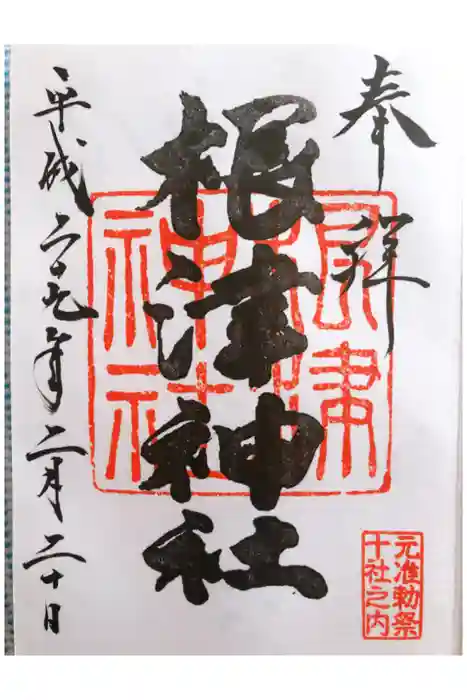 奉拝
根津神社
根津
神社
元准勅祭
十社之内
平成二十九年二月二十日